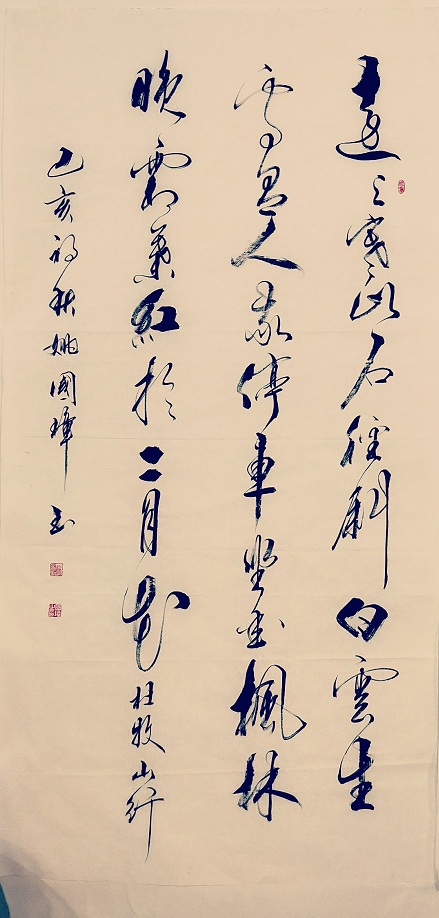 遠上寒山石徑斜白雲生
處有人家停車坐愛楓林
晚霜葉紅於二月花杜牧山行
己亥初秋姚國璋書